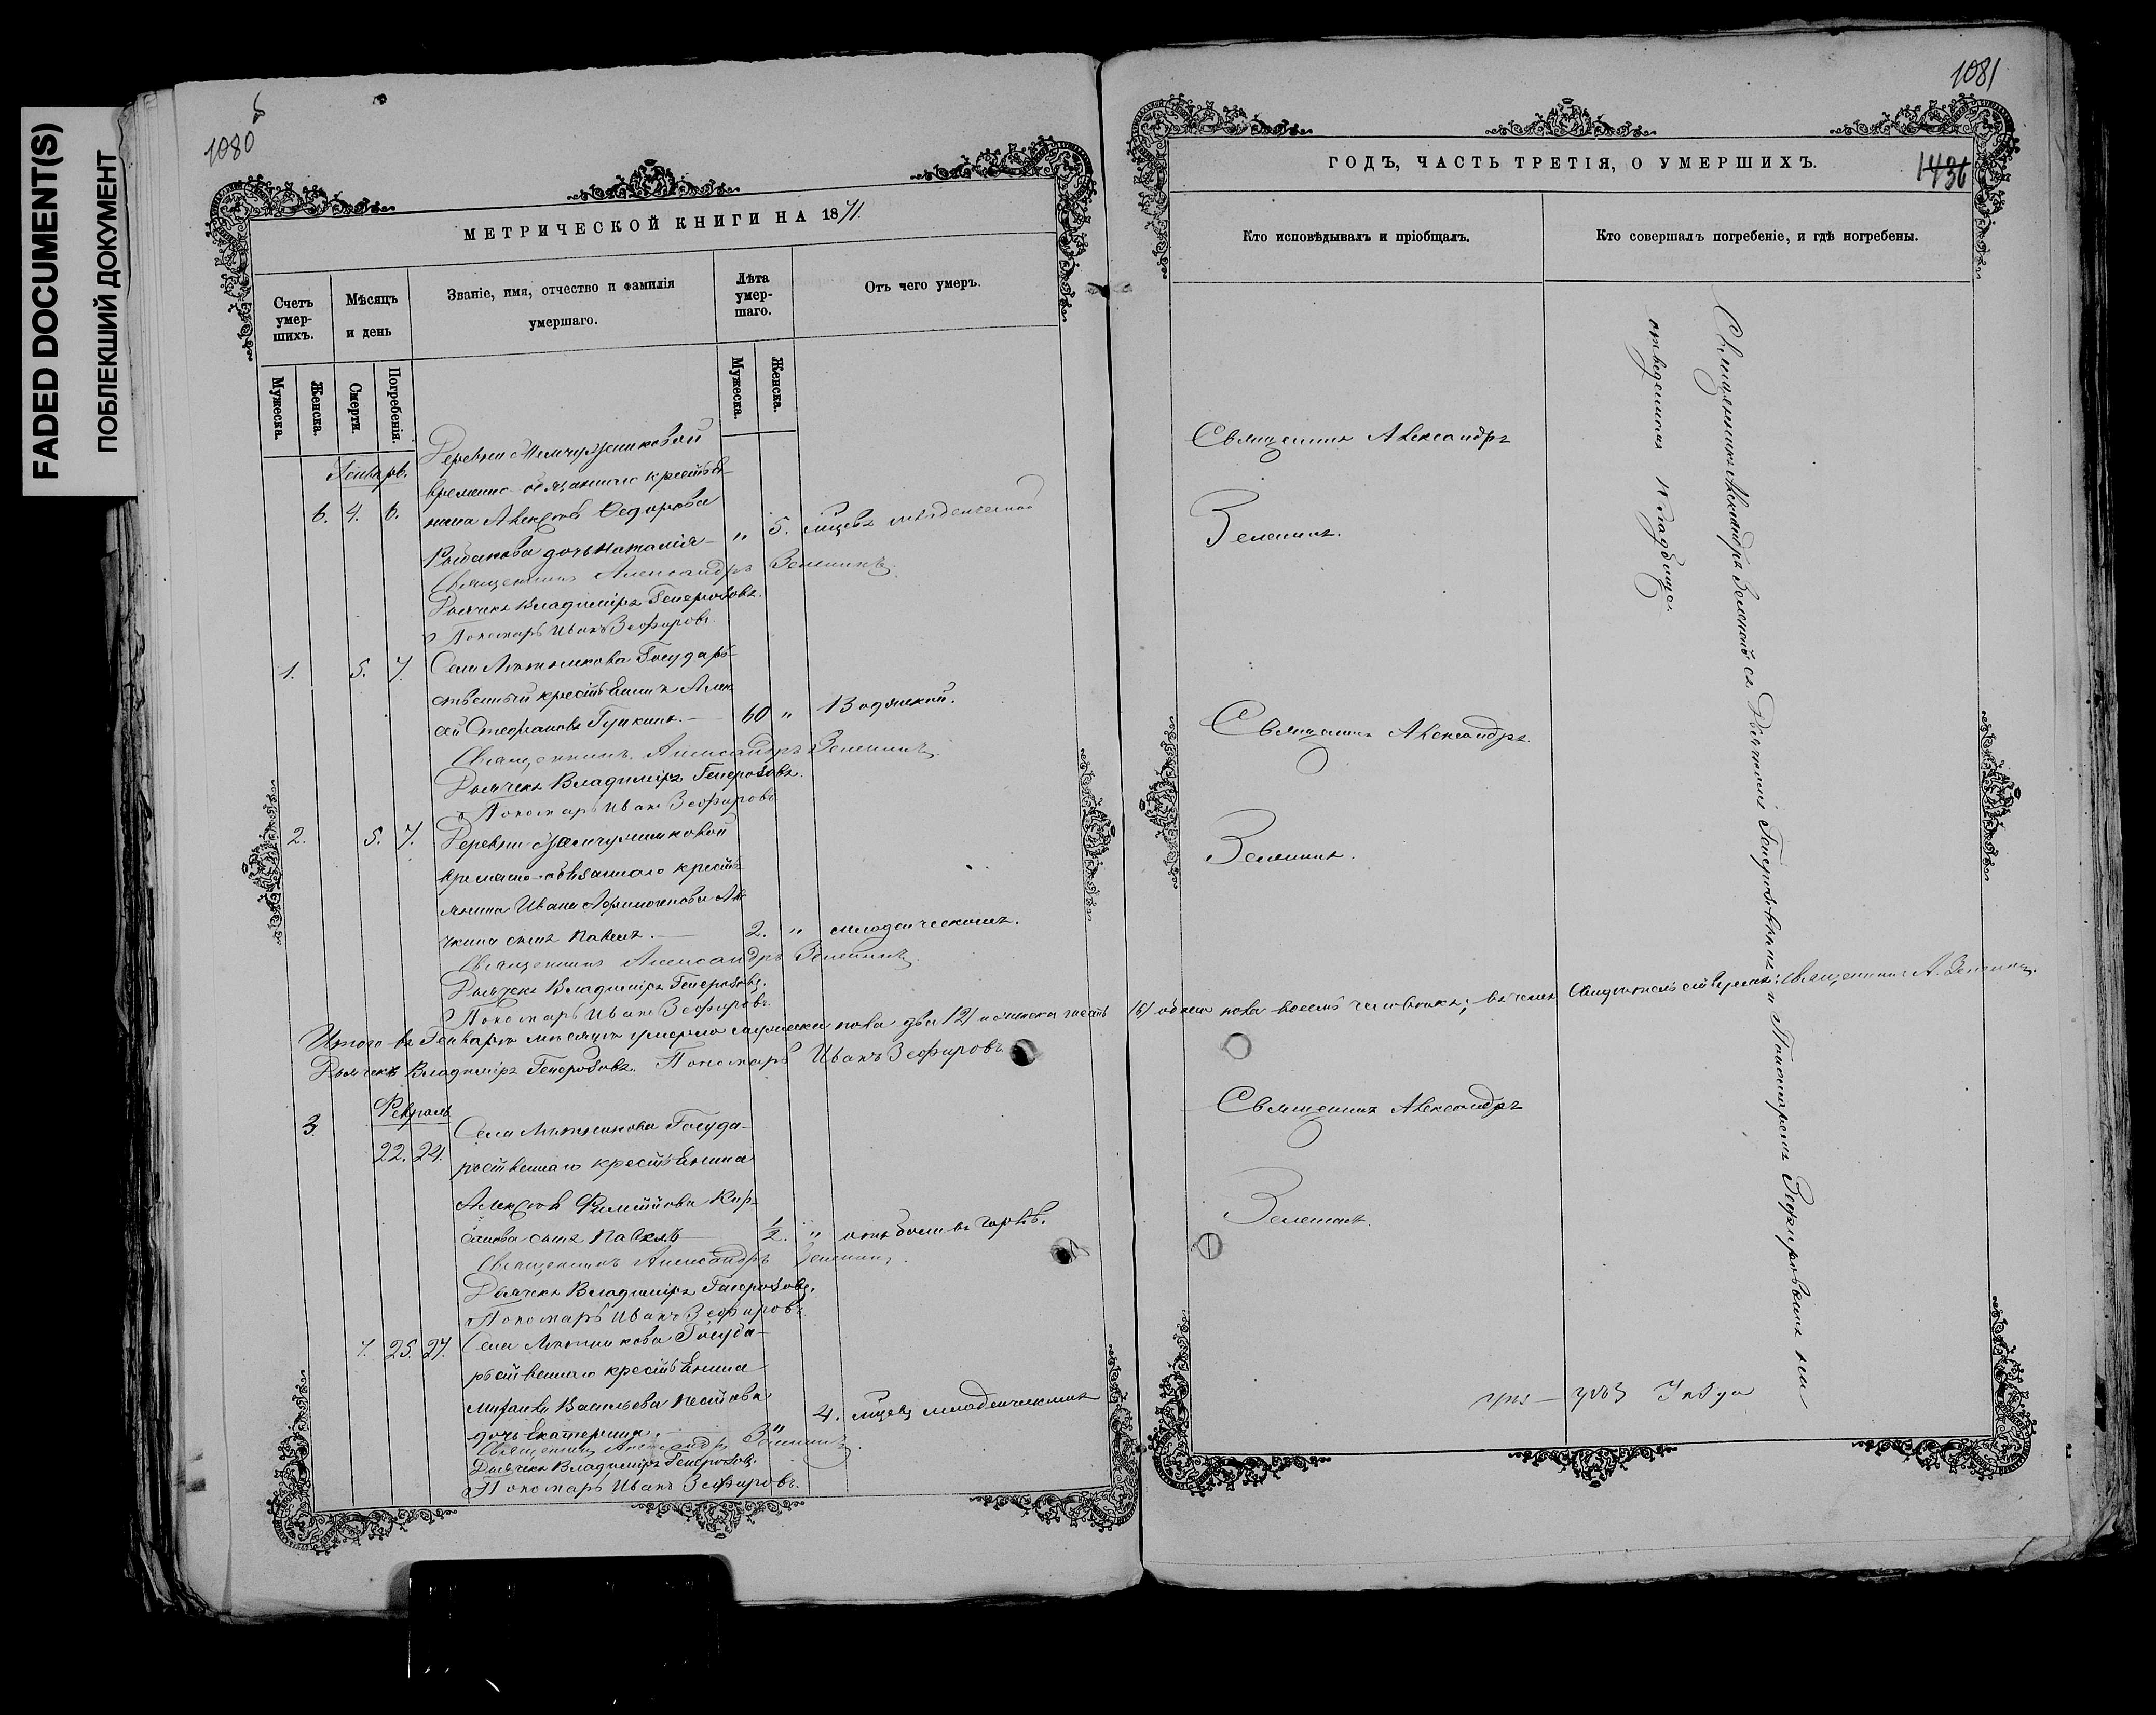 FADED DOCUMENT(S)
ПОБЛЕКШИЙ ДОКУМЕНТ
1080
МЕТРИЧЕСКОЙ КНИГИ НА 1871.
Счетъ умер-шихъ.
Мѣсяцъ и день
Званіе, имя, отчество и фамилія
умершаго.
Лѣта умер-шаго.
Отъ чего умеръ.
Мужеска.
Женска.
Смерти.
Погребенія.
Мужеска.
Женска.
Генварь.
Деревни
временно-обязаннаго крестья-
6. 4. 6. нина Алексѣя Федорова
дочь Наталія — " 5.
Священникъ Александръ Зеленинъ.
Дьячекъ Владиміръ Генерозовъ.
Пономарь Иванъ Зефировъ.
1. 5. 7. Села Государ-
ственный крестьянинъ Алек
сѣй Стефановъ — 60 " Водянкой.
Священникъ Александръ Зеленинъ.
Дьячекъ Владиміръ Генерозовъ.
Пономарь Иванъ Зефировъ
2. 5. 7. Деревни
временно-обязаннаго кресть-
янина Ивана
сынъ Павелъ. — 2. " младенческимъ.
Священникъ Александръ Зеленинъ.
Дьячекъ Владиміръ Генерозовъ.
Пономарь Иванъ Зефировъ.
Итого въ Генварѣ мѣсяцѣ умерло мужеска пола два /2/ и женска шесть /6/ обоего пола восемь человѣкъ; въ чемъ Священникъ А. Зеленинъ.
Дьячекъ Владиміръ Генерозовъ. Пономарь Иванъ Зефировъ
Февраль
3. 22. 24. Села Госуда-
рственнаго крестьянина
Алексѣя Филиппова Кор-
сынъ Павелъ — 1/2. " отъ боли въ горлѣ.
Священникъ Александръ Зеленинъ.
Дьячекъ Владиміръ Генерозовъ.
Пономарь Иванъ Зефировъ
7. 25. 27. Села Госуда-
рственнаго крестьянина
Михаила Васильева
дочь Екатерина. " 4. младенческимъ
Священникъ Александръ Зеленинъ.
Дьячекъ Владиміръ Генерозовъ.
Пономарь Иванъ Зефировъ.
1081
ГОДЪ, ЧАСТЬ ТРЕТІЯ, О УМЕРШИХЪ.
1436
Кто исповѣдывалъ и пріобщалъ.
Кто совершалъ погребеніе, и гдѣ погребены.
Священникъ Александръ
Зеленинъ.
Священникъ Александръ
Зеленинъ.
Священникъ Александръ
Зеленинъ.
Священникъ Александръ Зеленинъ съ Дьячкомъ Генерозовымъ и Пономаремъ Зефировымъ на
отведенномъ кладбищѣ.